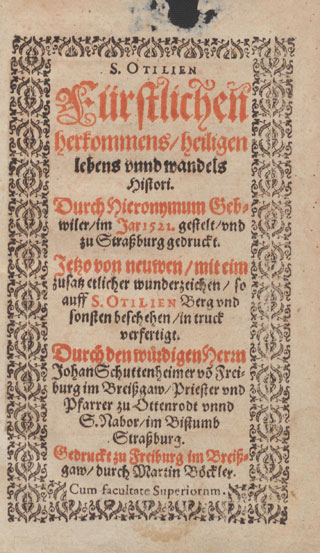 S. OTILIEN
Fürstlichen
herkommens/ heiligen
lebens vnnd wandels
Histori.
Durch Hieronymum Geb-
wiler/ im Jar 1521. gestelt/ vnd
zu Straßburg gedruckt.
Jetzo von neuwen/ mit eim
zusatz etlicher wunderzeichen/ so
auff S. OTILIEN Berg vnd
sonsten beschehen/ in truck
verfertigt.
Durch den würdigen Herrn
Johan Schuttenheimer vō Frei-
burg im Breißgaw/ Priester vnd
Pfarrer zu Ottenrodt vnnd
S. Nabor/ im Bistumb
Straßburg.
Gedruckt zu Freiburg im Breiß-
gaw/ durch Martin Böckler.
Cum facultate Superiorum.